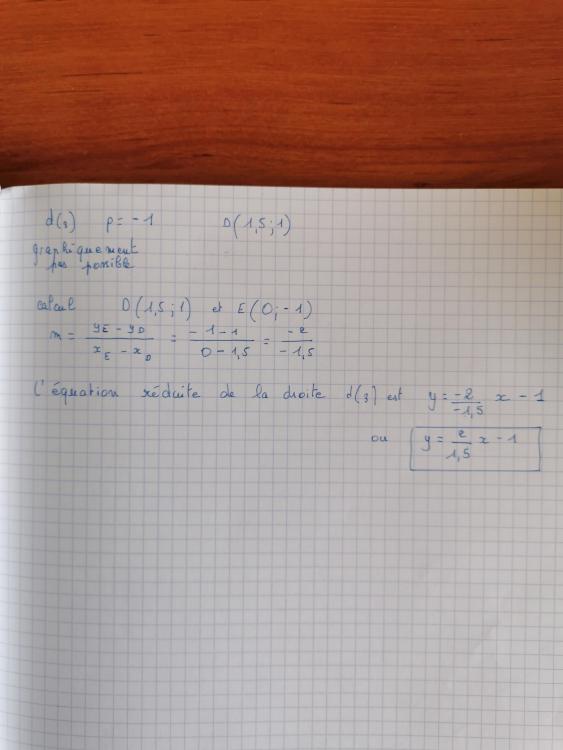 d(3) p = -1 D(1,5 ; 1)
graphiquement
pas possible
calcul D(1,5 ; 1) et E(0 ; -1)
m = (yE - yD)/(xE - xD) = (-1 - 1)/(0 - 1,5) = -2/-1,5
L'équation réduite de la droite d(3) est y = -2/-1,5 x - 1
ou y = 2/1,5 x - 1